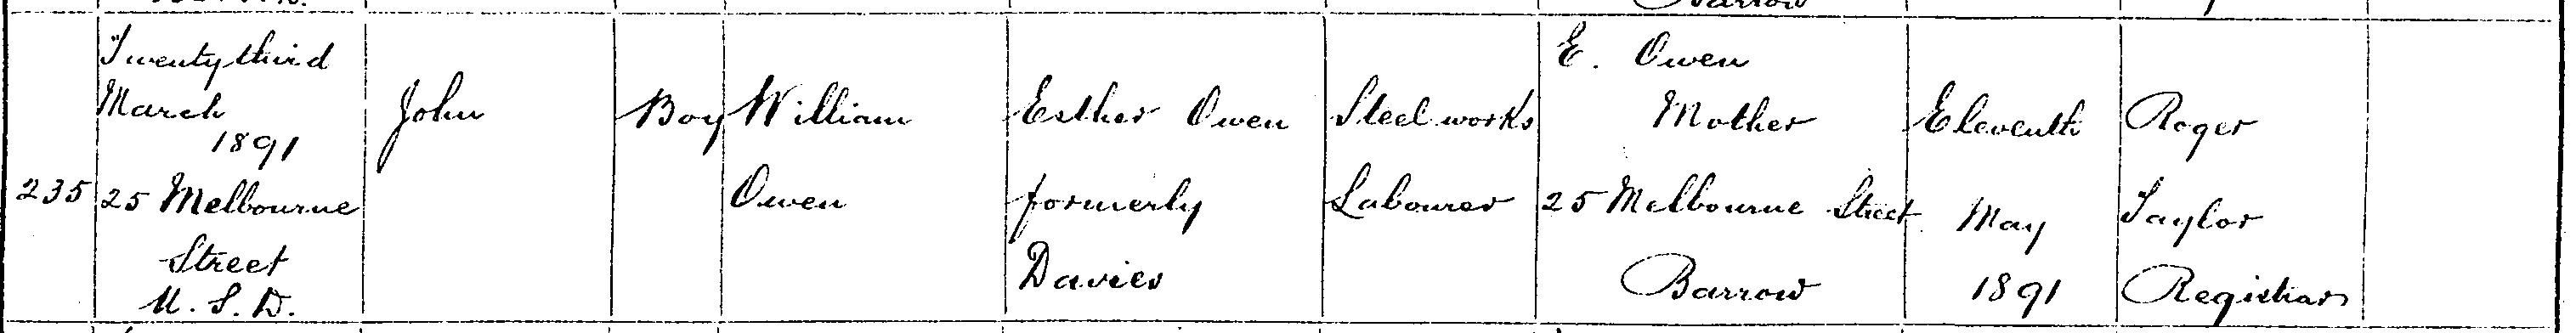 Barrow
235
Twenty third
March
1891
25 Melbourne
Street
U. S. D.
John
Boy
William
Owen
Esther Owen
formerly
Davies
Steelworks
Labourer
E. Owen
Mother
25 Melbourne Street
Barrow
Eleventh
May
1891
Roger
Taylor
Registrar